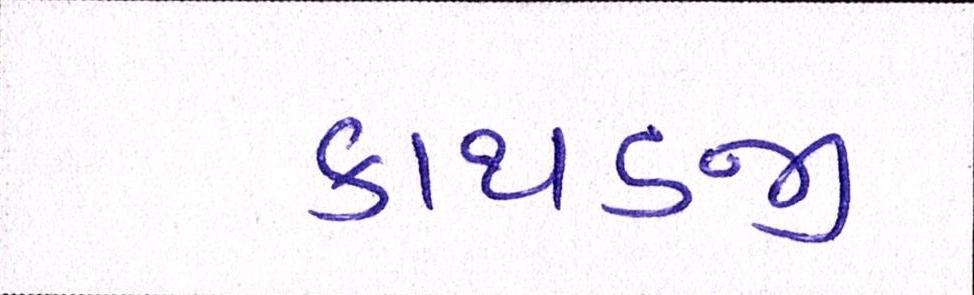 કાથડજી